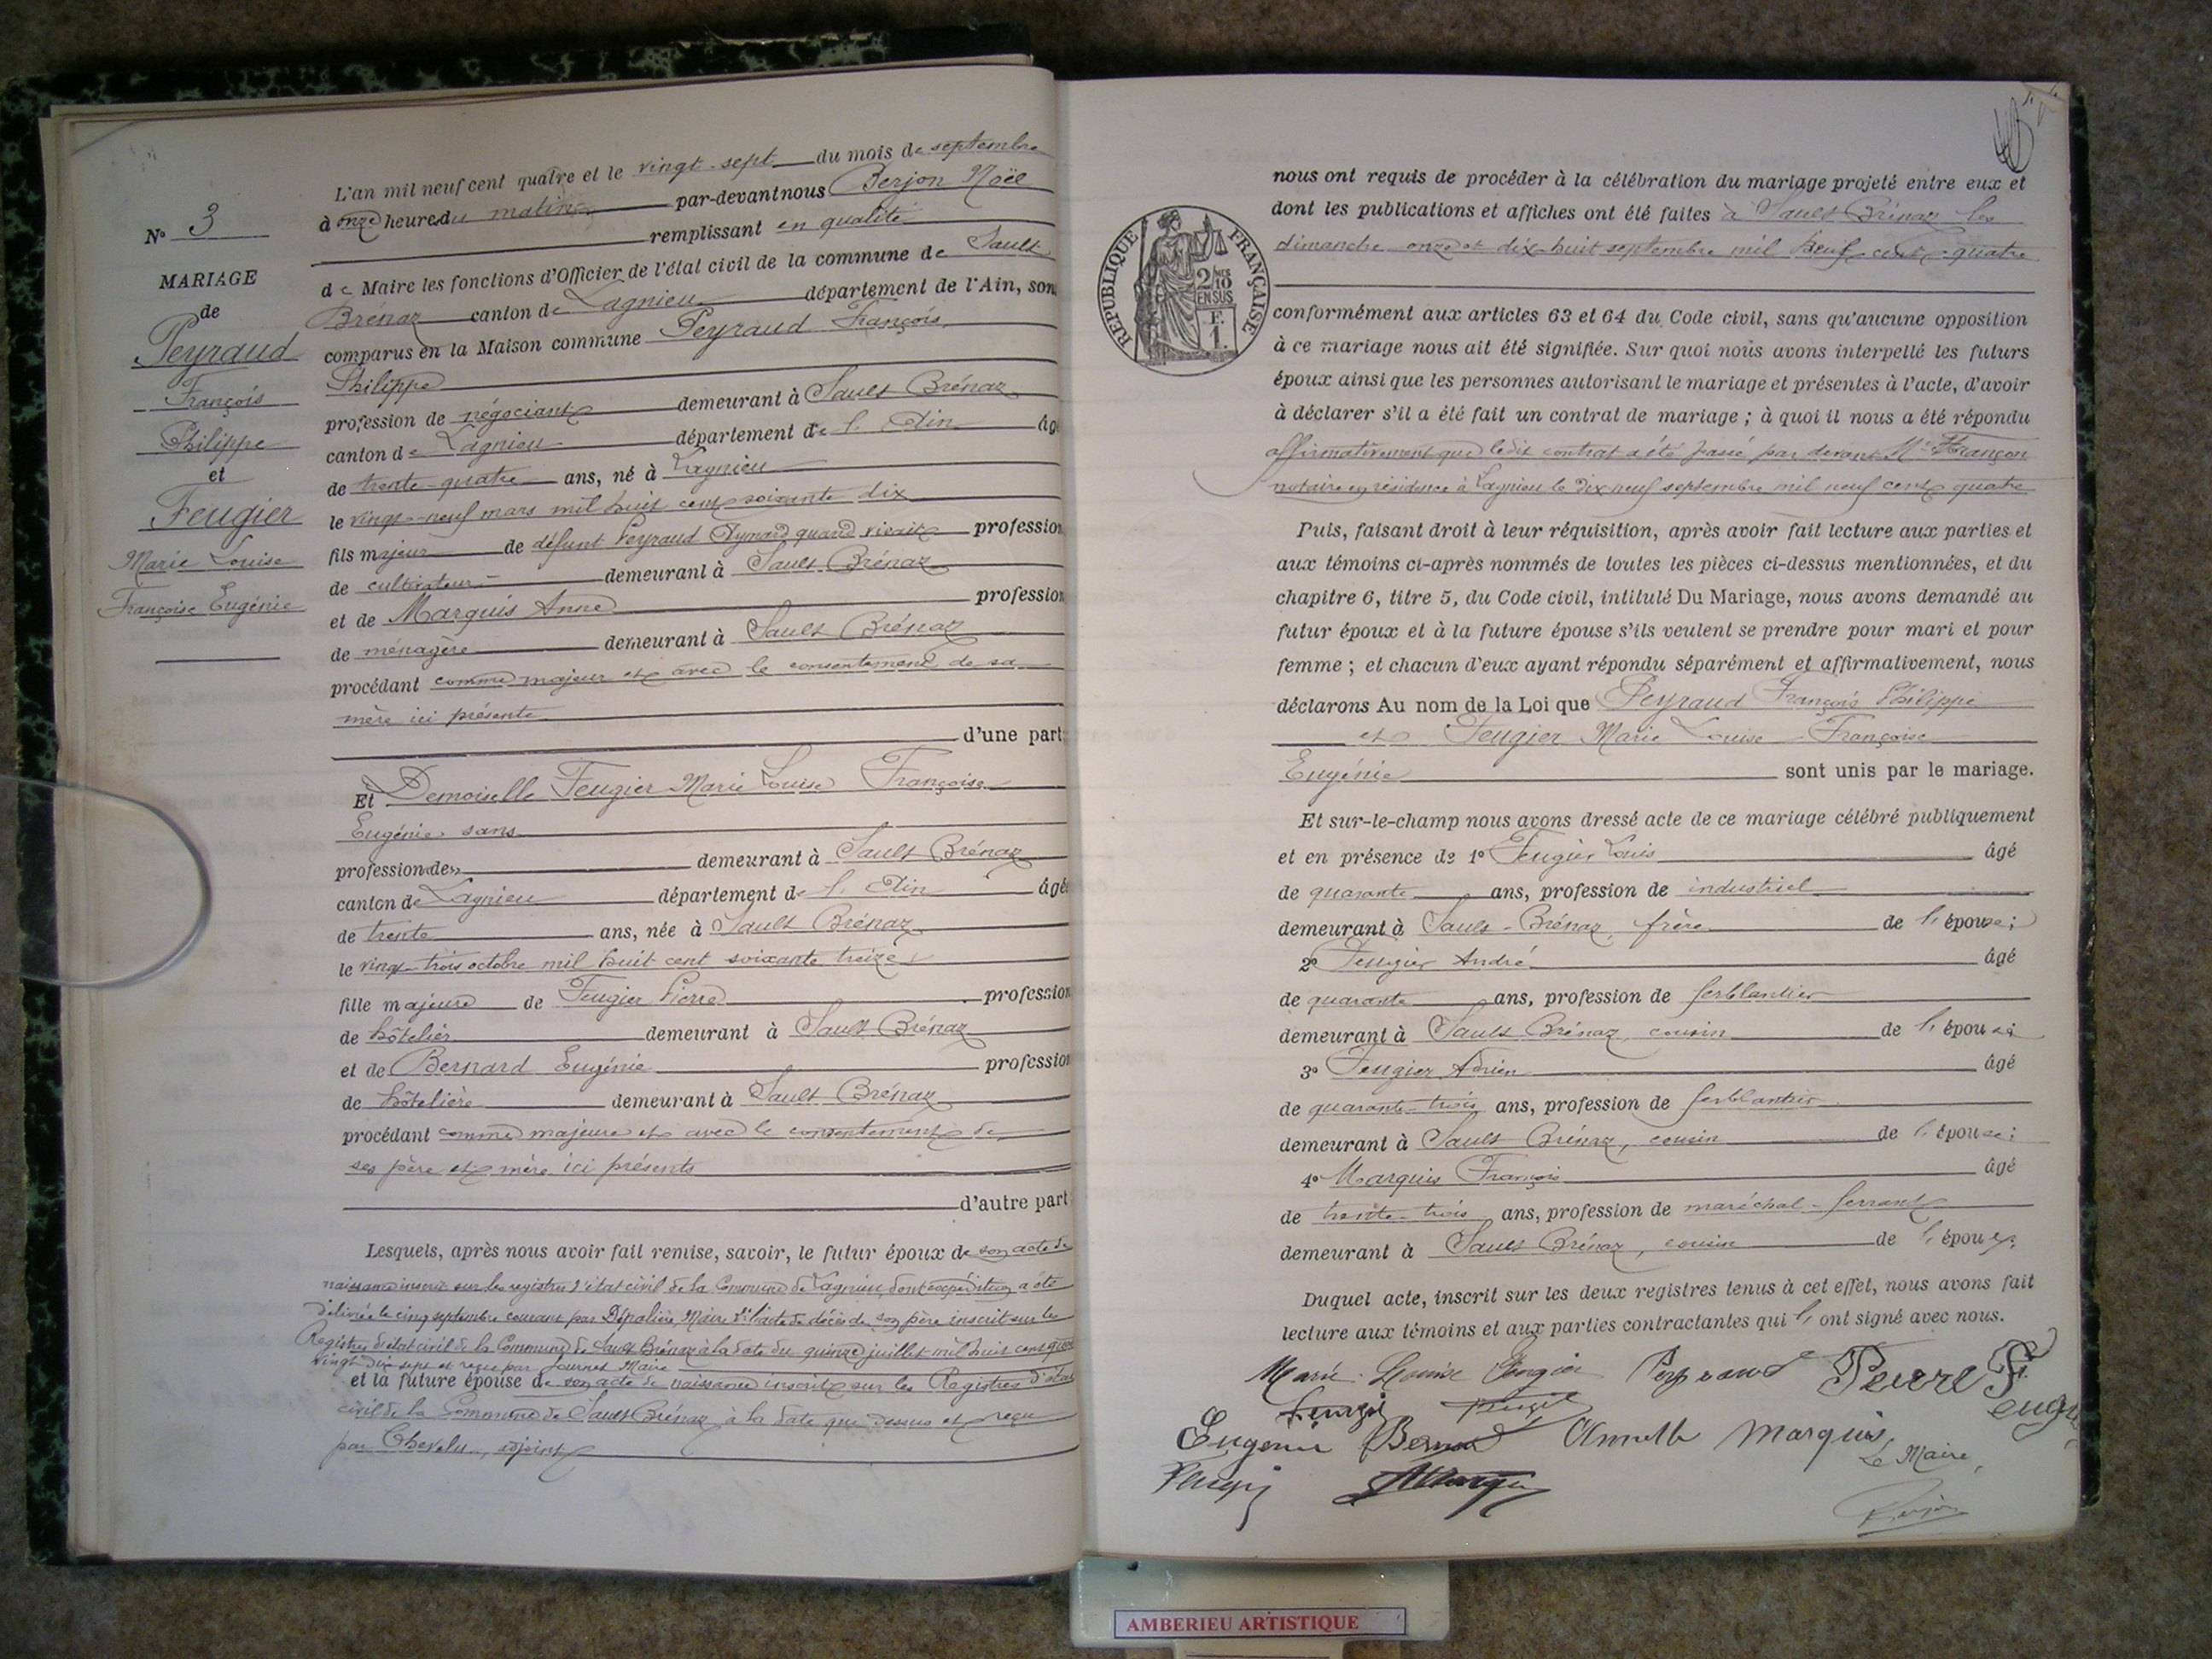 N° 3
MARIAGE
de
Peyraud
François
Philippe
et
Feugier
Marie Louise
Françoise Eugénie
L'an mil neuf cent quatre et le vingt-sept du mois de septembre
à onze heures du matin par-devant nous Berjon Noël
remplissant en qualité
de Maire les fonctions d'Officier de l'état civil de la commune de Sault
Brénaz canton de Lagnieu département de l'Ain, son
comparus en la Maison commune Peyraud François
Philippe
profession de négociant demeurant à Sault Brénaz
canton de Lagnieu département de l'Ain âg
de trente-quatre ans, né à Lagnieu
le vingt-neuf mars mil huit cent soixante dix
fils majeur de défunt Peyraud Aymard quand vivait profession
de cultivateur demeurant à Sault Brénaz
et de Marquis Anne profession
de ménagère demeurant à Sault Brénaz
procédant comme majeur et avec le consentement de sa
mère ici présente
d'une part;
Et Demoiselle Feugier Marie Louise Françoise
Eugénie sans
profession de demeurant à Sault Brénaz
canton de Lagnieu département de l'Ain âgé
de trente ans, née à Sault Brénaz
le vingt-trois octobre mil huit cent soixante treize
fille majeure de Feugier Pierre profession
de hôtelier demeurant à Sault Brénaz
et de Bernard Eugénie profession
de hôtelière demeurant à Sault Brénaz
procédant comme majeure et avec le consentement de
ses père et mère ici présents
d'autre part
Lesquels, après nous avoir fait remise, savoir, le futur époux de son acte de
naissance inscrit sur les registres d'état civil de la Commune de Lagnieu, dont expédition a été
délivrée le cinq septembre courant par Dépalière, Maire 2° l'acte de décès de son père inscrit sur les
Registres d'état civil de la Commune de Sault Brénaz à la date du quinze juillet mil huit cent quatre
vingt dix sept et reçu par Journet Maire
et la future épouse de son acte de naissance inscrit sur les Registres d'état
civil de la Commune de Sault Brénaz à la date que dessus et reçu
par Chevelu, adjoint
nous ont requis de procéder à la célébration du mariage projeté entre eux et
dont les publications et affiches ont été faites à Sault Brénaz les
dimanche onze et dix-huit septembre mil neuf cent quatre
REPUBLIQUE FRANÇAISE
2/10 EN SUS
F. 1.
conformément aux articles 63 et 64 du Code civil, sans qu'aucune opposition
à ce mariage nous ait été signifiée. Sur quoi nous avons interpellé les futurs
époux ainsi que les personnes autorisant le mariage et présentes à l'acte, d'avoir
à déclarer s'il a été fait un contrat de mariage ; à quoi il nous a été répondu
affirmativement que ledit contrat a été passé par devant Me Françon
notaire en résidence à Lagnieu le dix neuf septembre mil neuf cent quatre
Puis, faisant droit à leur réquisition, après avoir fait lecture aux parties et
aux témoins ci-après nommés de toutes les pièces ci-dessus mentionnées, et du
chapitre 6, titre 5, du Code civil, intitulé Du Mariage, nous avons demandé au
futur époux et à la future épouse s'ils veulent se prendre pour mari et pour
femme ; et chacun d'eux ayant répondu séparément et affirmativement, nous
déclarons Au nom de la Loi que Peyraud François Philippe
et Feugier Marie Louise Françoise
Eugénie sont unis par le mariage.
Et sur-le-champ nous avons dressé acte de ce mariage célébré publiquement
et en présence de 1° Feugier Louis âgé
de quarante ans, profession de industriel
demeurant à Sault-Brénaz, frère de l'épouse;
2° Feugier André âgé
de quarante ans, profession de ferblantier
demeurant à Sault Brénaz, cousin de l'épouse;
3° Feugier Adrien âgé
de quarante-trois ans, profession de ferblantier
demeurant à Sault Brénaz, cousin de l'épouse;
4° Marquis François âgé
de trente-trois ans, profession de maréchal-ferrant
demeurant à Sault Brénaz, cousin de l'époux;
Duquel acte, inscrit sur les deux registres tenus à cet effet, nous avons fait
lecture aux témoins et aux parties contractantes qui l'ont signé avec nous.
Marie Louise Feugier Peyraud Pierre Feugier
Feugier Feugier
Eugénie Bernard Marquis
Le Maire,
Feugier Berjon
AMBERIEU ARTISTIQUE